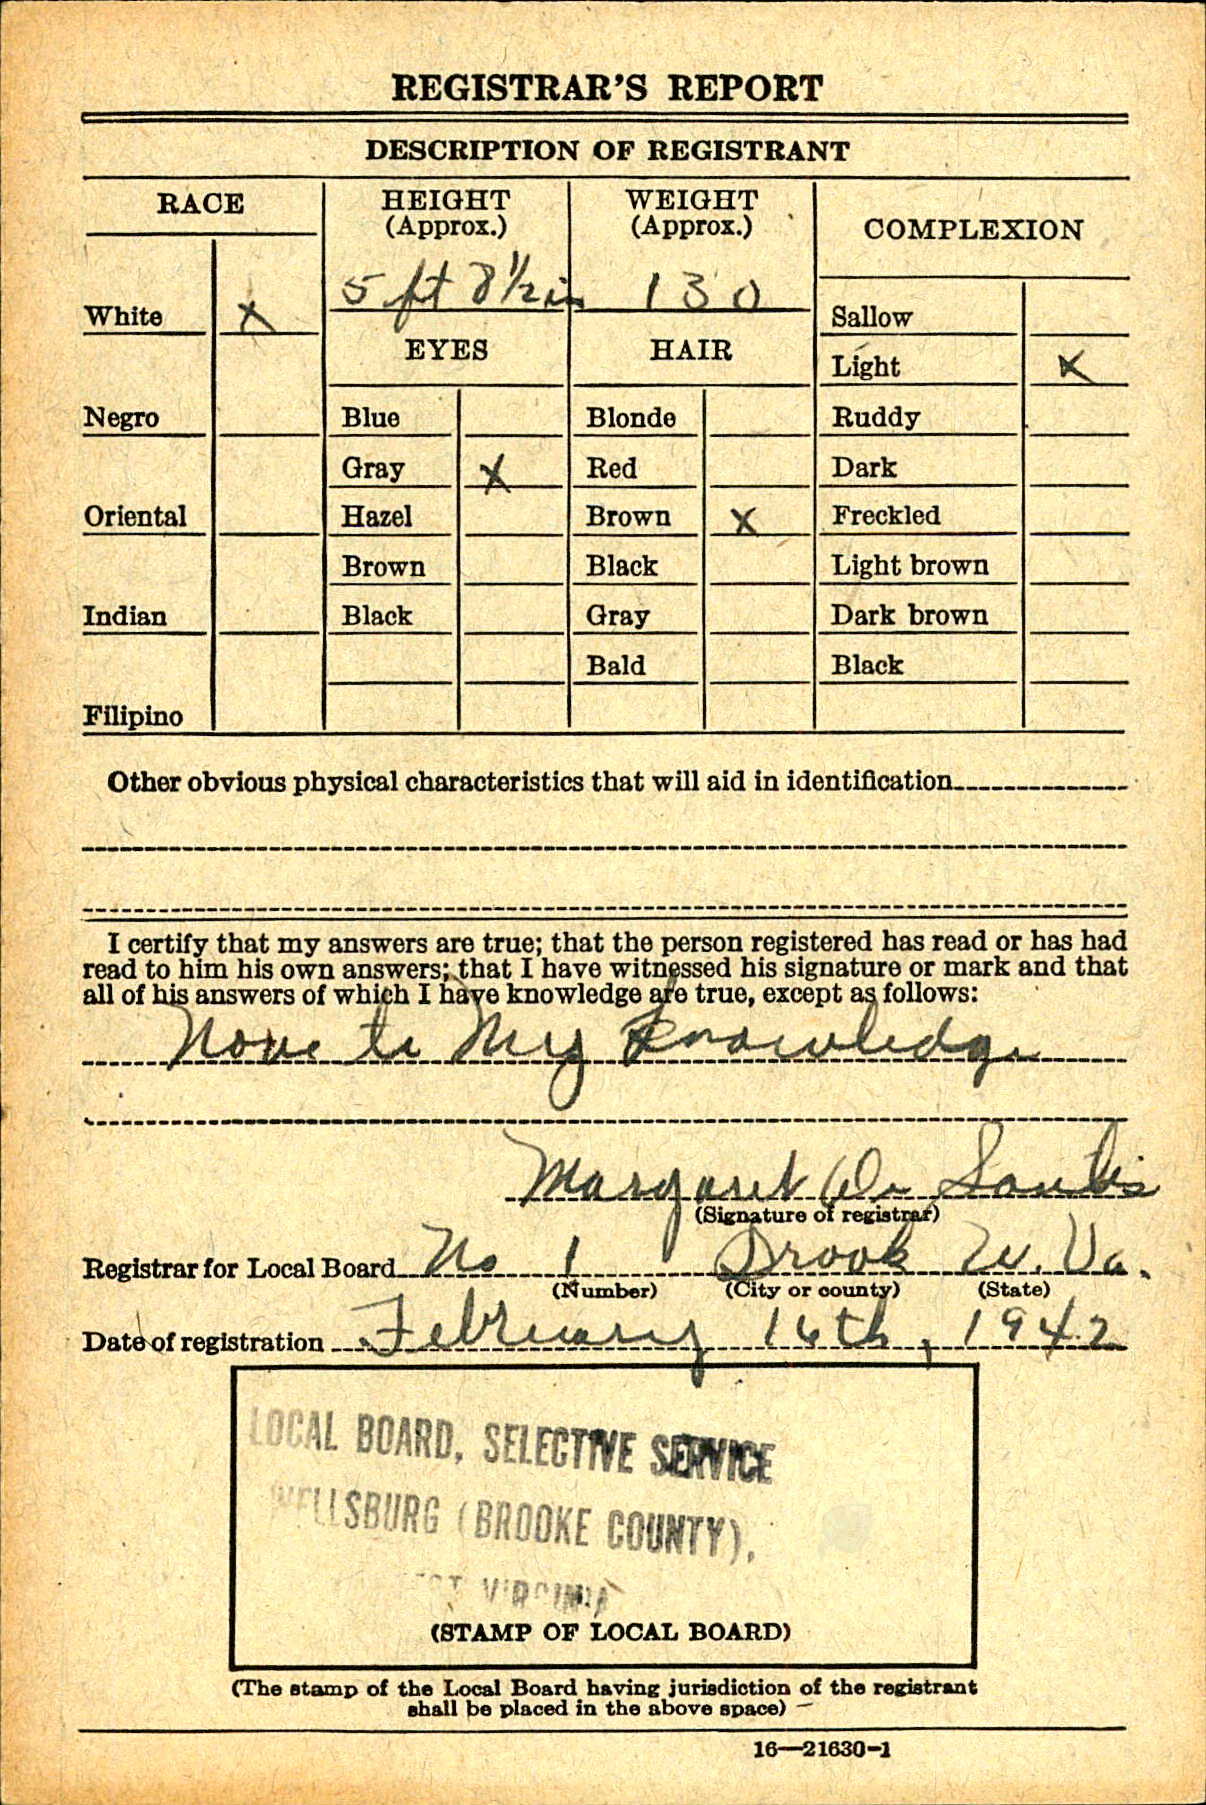 REGISTRAR'S REPORT
DESCRIPTION OF REGISTRANT
RACE
HEIGHT
(Approx.)
WEIGHT
(Approx.)
COMPLEXION
5 ft 8½ in
130
White X
Sallow
EYES
HAIR
Light X
Negro
Blue
Blonde
Ruddy
Gray X
Red
Dark
Oriental
Hazel
Brown X
Freckled
Brown
Black
Light brown
Indian
Black
Gray
Dark brown
Bald
Black
Filipino
Other obvious physical characteristics that will aid in identification
I certify that my answers are true; that the person registered has read or has had
read to him his own answers; that I have witnessed his signature or mark and that
all of his answers of which I have knowledge are true, except as follows:
None to My Knowledge
Margaret De Santis
(Signature of registrar)
Registrar for Local Board No 1 Brook W. Va.
(Number) (City or county) (State)
Date of registration February 16th, 1942
LOCAL BOARD, SELECTIVE SERVICE
WELLSBURG (BROOKE COUNTY),
WEST VIRGINIA
(STAMP OF LOCAL BOARD)
(The stamp of the Local Board having jurisdiction of the registrant
shall be placed in the above space)
16—21630-1